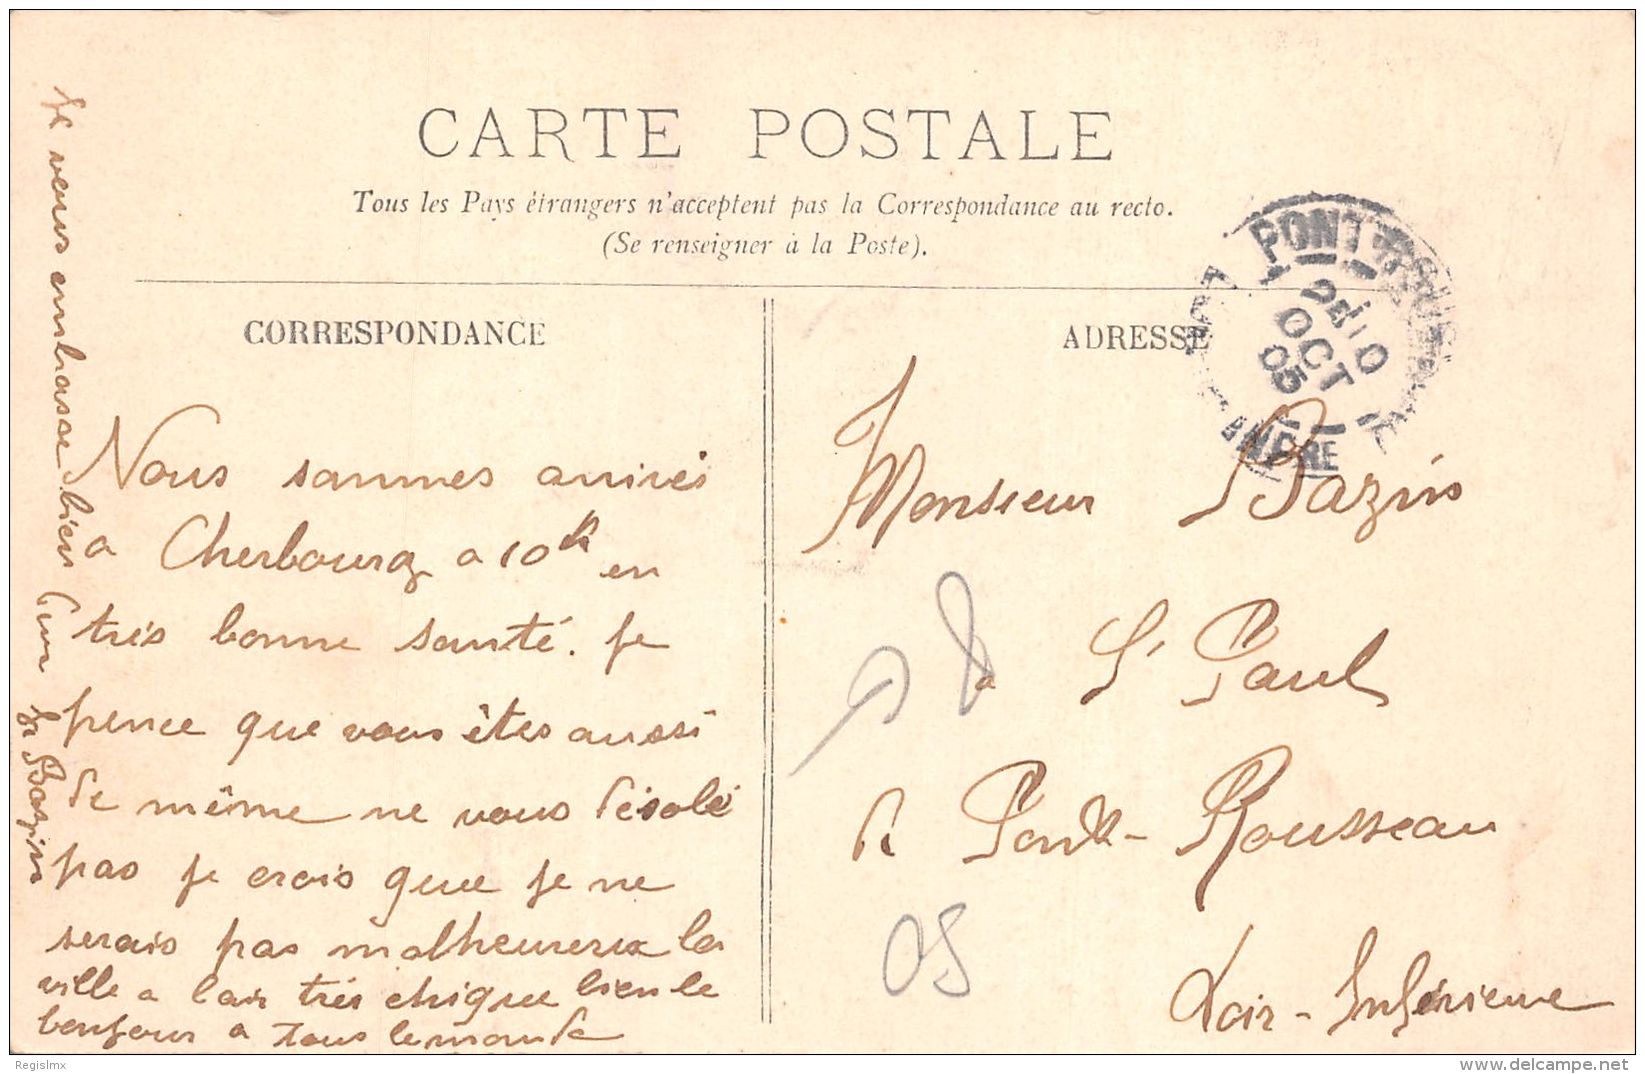 CARTE POSTALE
Tous les Pays étrangers n'acceptent pas la Correspondance au recto.
(Se renseigner à la Poste).
CORRESPONDANCE
Nous sommes arrivés
a Cherbourg a 10h en
très bonne santé. Je
pence que vous êtes aussi
de même ne vous désolé
pas je crois que je ne
serais pas malheureux la
ville a lair très chique bien le
bonjour a tous le monde
Je vous embrasse bien
Bazin
ADRESSE
Monsieur Bazin
a St Paul
Pont-Rousseau
Loir-Inférieure
PONT-ROUSSEAU
10
OCT
05
08
05
Regislmx
delcampe.net